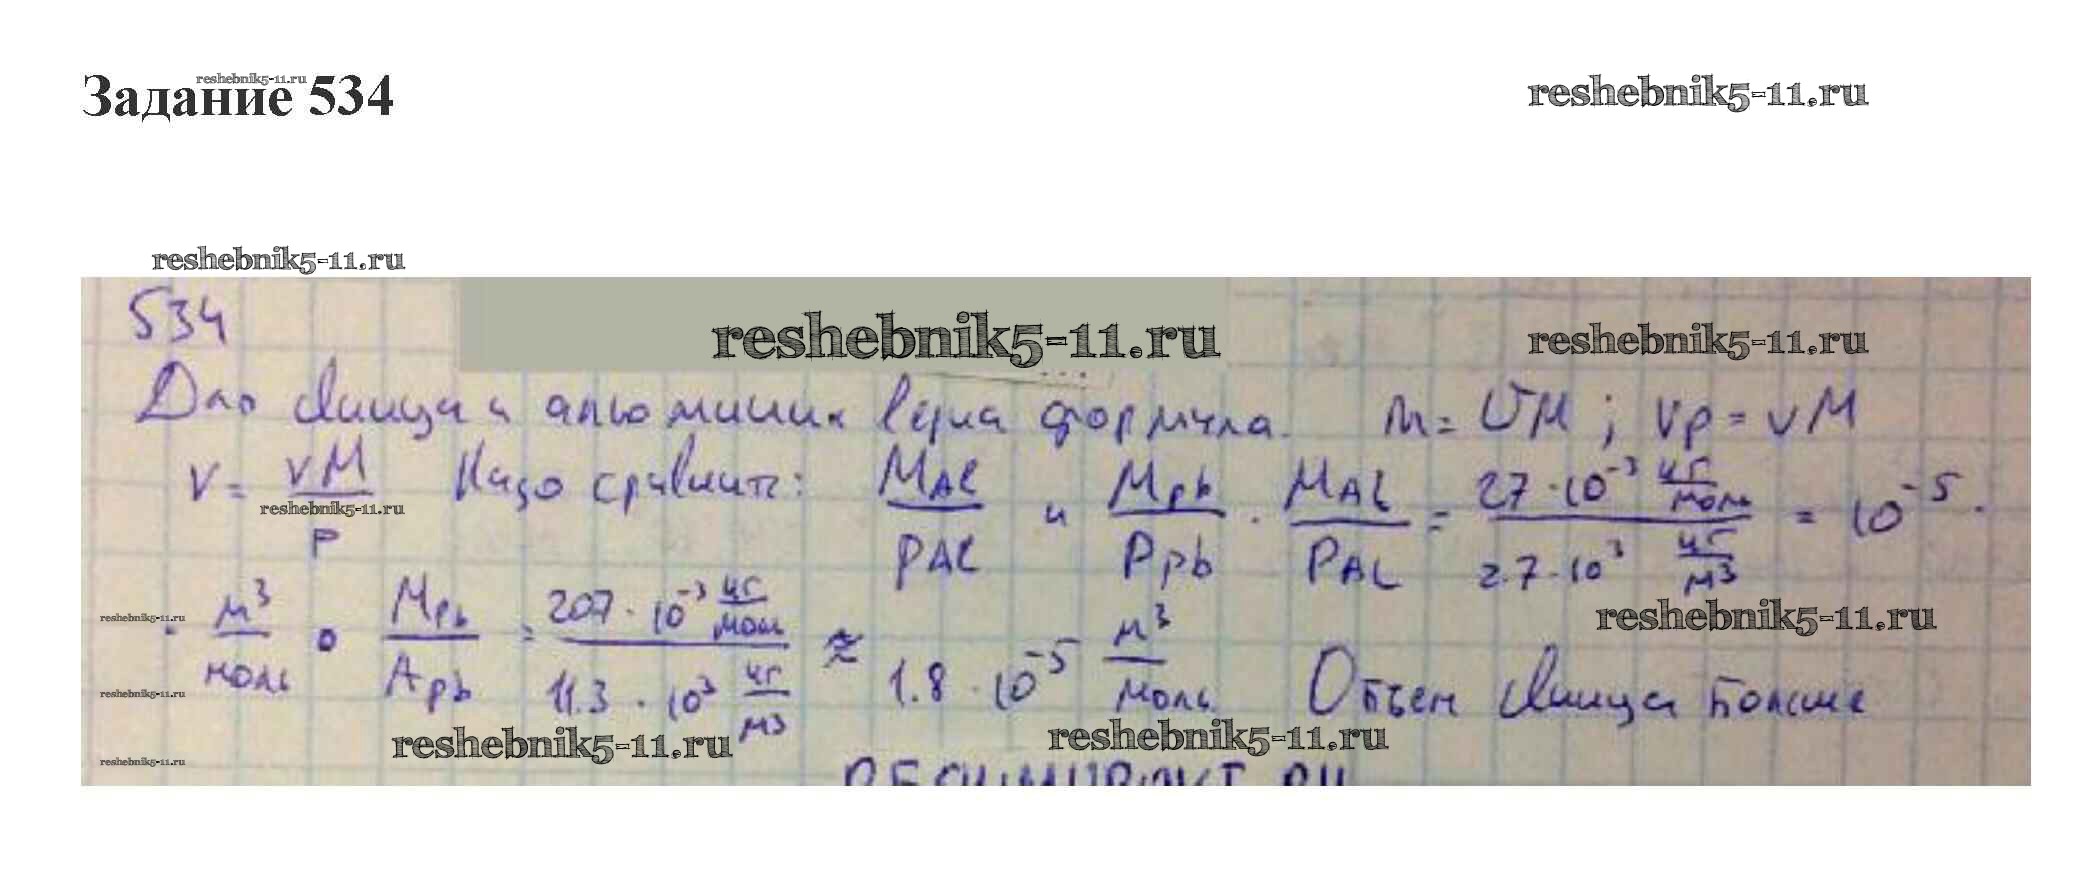 Задание 534
reshebnik5-11.ru
reshebnik5-11.ru
reshebnik5-11.ru
534
reshebnik5-11.ru
reshebnik5-11.ru
Для свинца и алюминия верна формула. m = νM ; Vρ = νM
V = νM/ρ Надо сравнить: M_Al/ρ_Al и M_Pb/ρ_Pb . M_Al/ρ_Al = 27·10⁻³ кг/моль / 2.7·10³ кг/м³ = 10⁻⁵ ·
reshebnik5-11.ru
· м³/моль . M_Pb/A_Pb = 207·10⁻³ кг/моль / 11.3·10³ кг/м³ ≈ 1.8·10⁻⁵ м³/моль Объем свинца больше
reshebnik5-11.ru
reshebnik5-11.ru
reshebnik5-11.ru
reshebnik5-11.ru
reshebnik5-11.ru
reshebnik5-11.ru